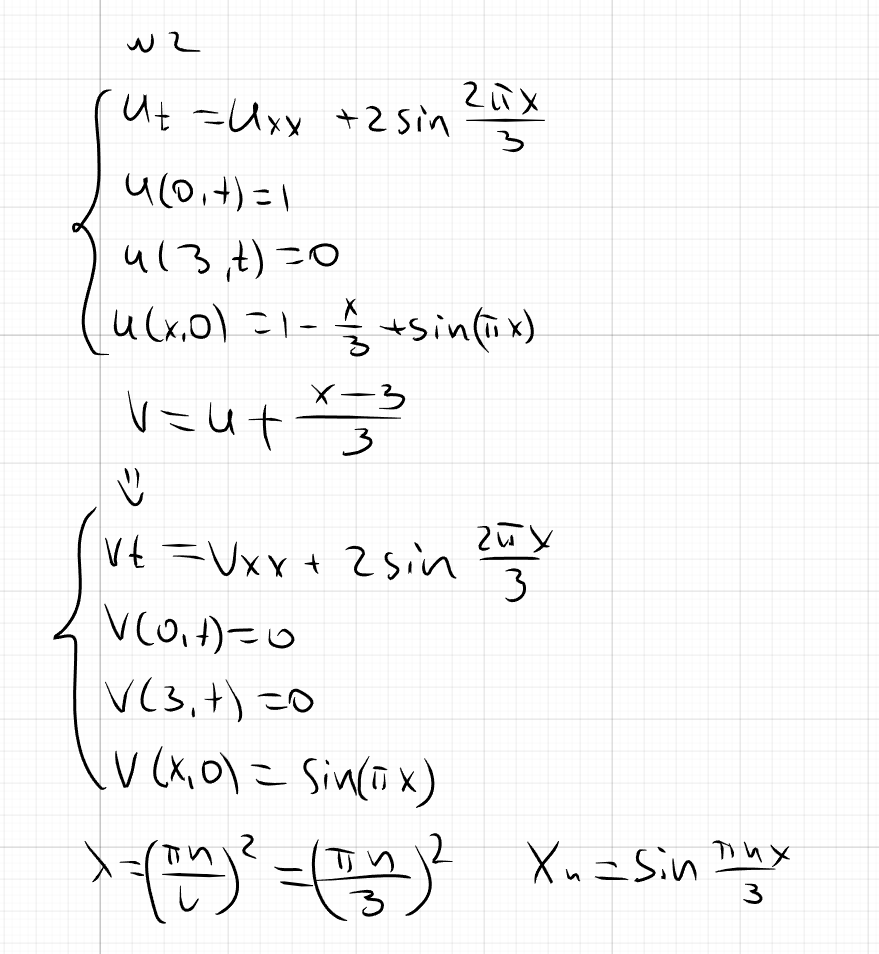 №2
u_t = u_xx + 2 sin 2πx/3
u(0,t)=1
u(3,t)=0
u(x,0) = 1 - x/3 + sin(πx)
v = u + (x-3)/3
⇓
v_t = v_xx + 2 sin 2πx/3
v(0,t)=0
v(3,t)=0
v(x,0) = sin(πx)
λ = (πn/l)² = (πn/3)² X_n = sin πnx/3